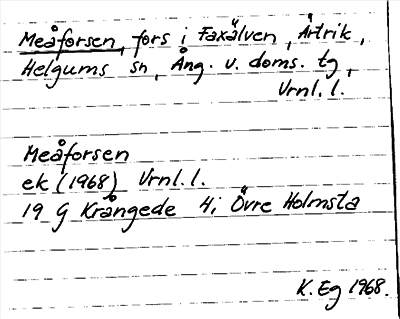 Meåforsen, fors i Faxälven, Årtrik,
Helgums sn, Ång. v. doms. tg,
Vrnl. l.
Meåforsen
ek (1968) Vrnl. l.
19 G Krångede 4i Övre Holmsta
K. Eg 1968.